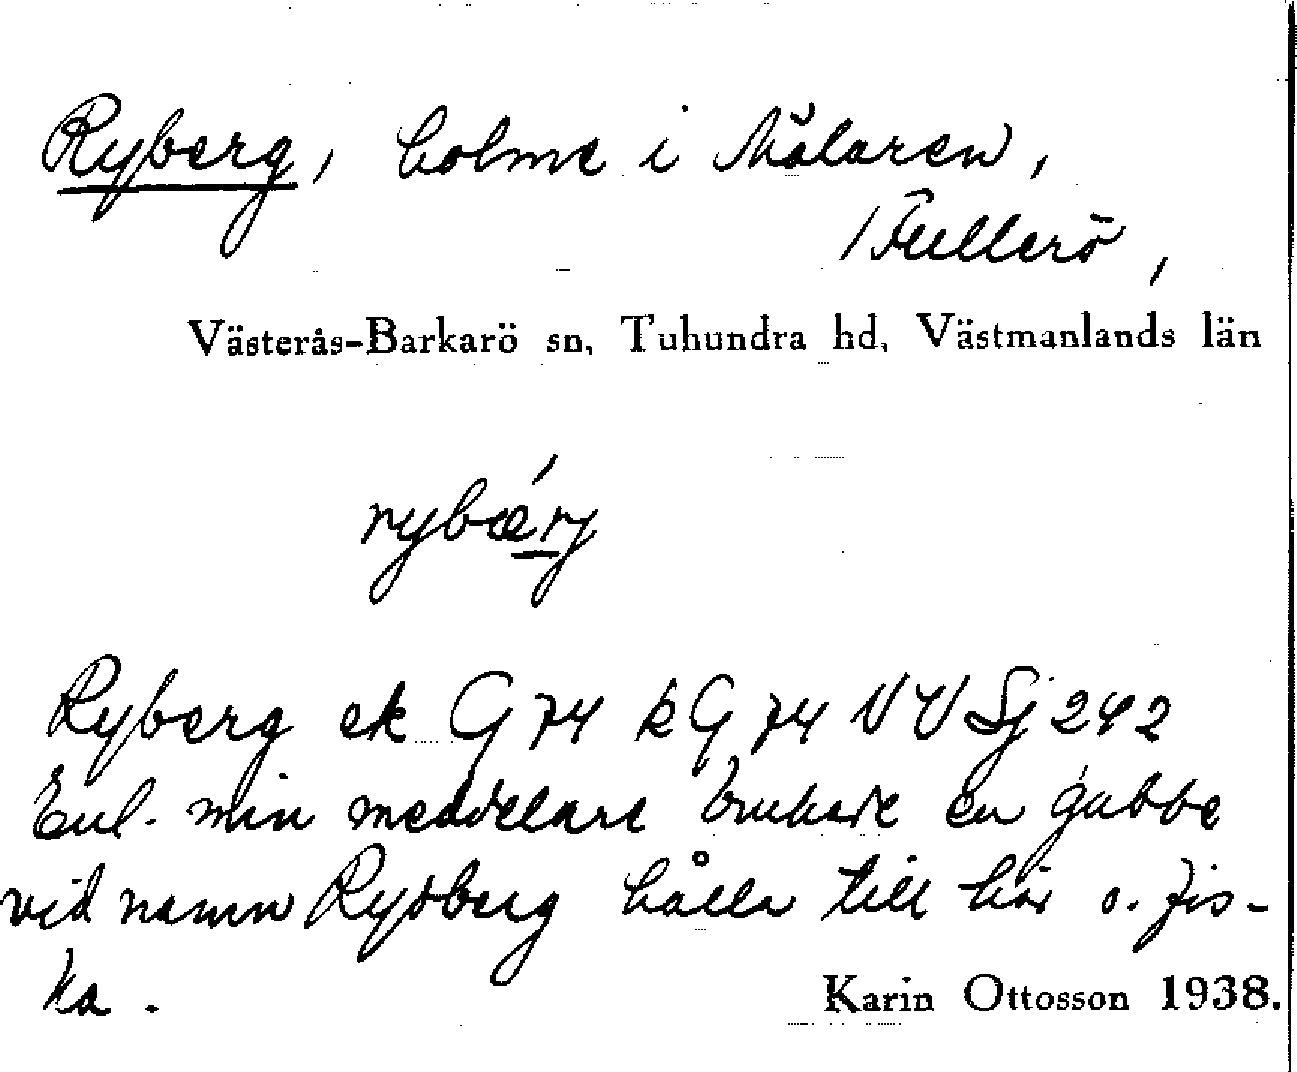 Ryberg, holme i Mälaren,
/Fullerö,
Västerås-Barkarö sn, Tuhundra hd, Västmanlands län
rybǽrj
Ryberg ek G 74 kG 74 NV Sj 242
Enl. min meddelare brukade en gubbe
vid namn Rydberg hålla till här o. fis-
ka.
Karin Ottosson 1938.